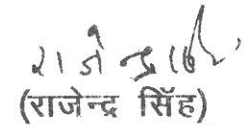 राजेन्द्र सिंह
(राजेन्द्र सिंह)